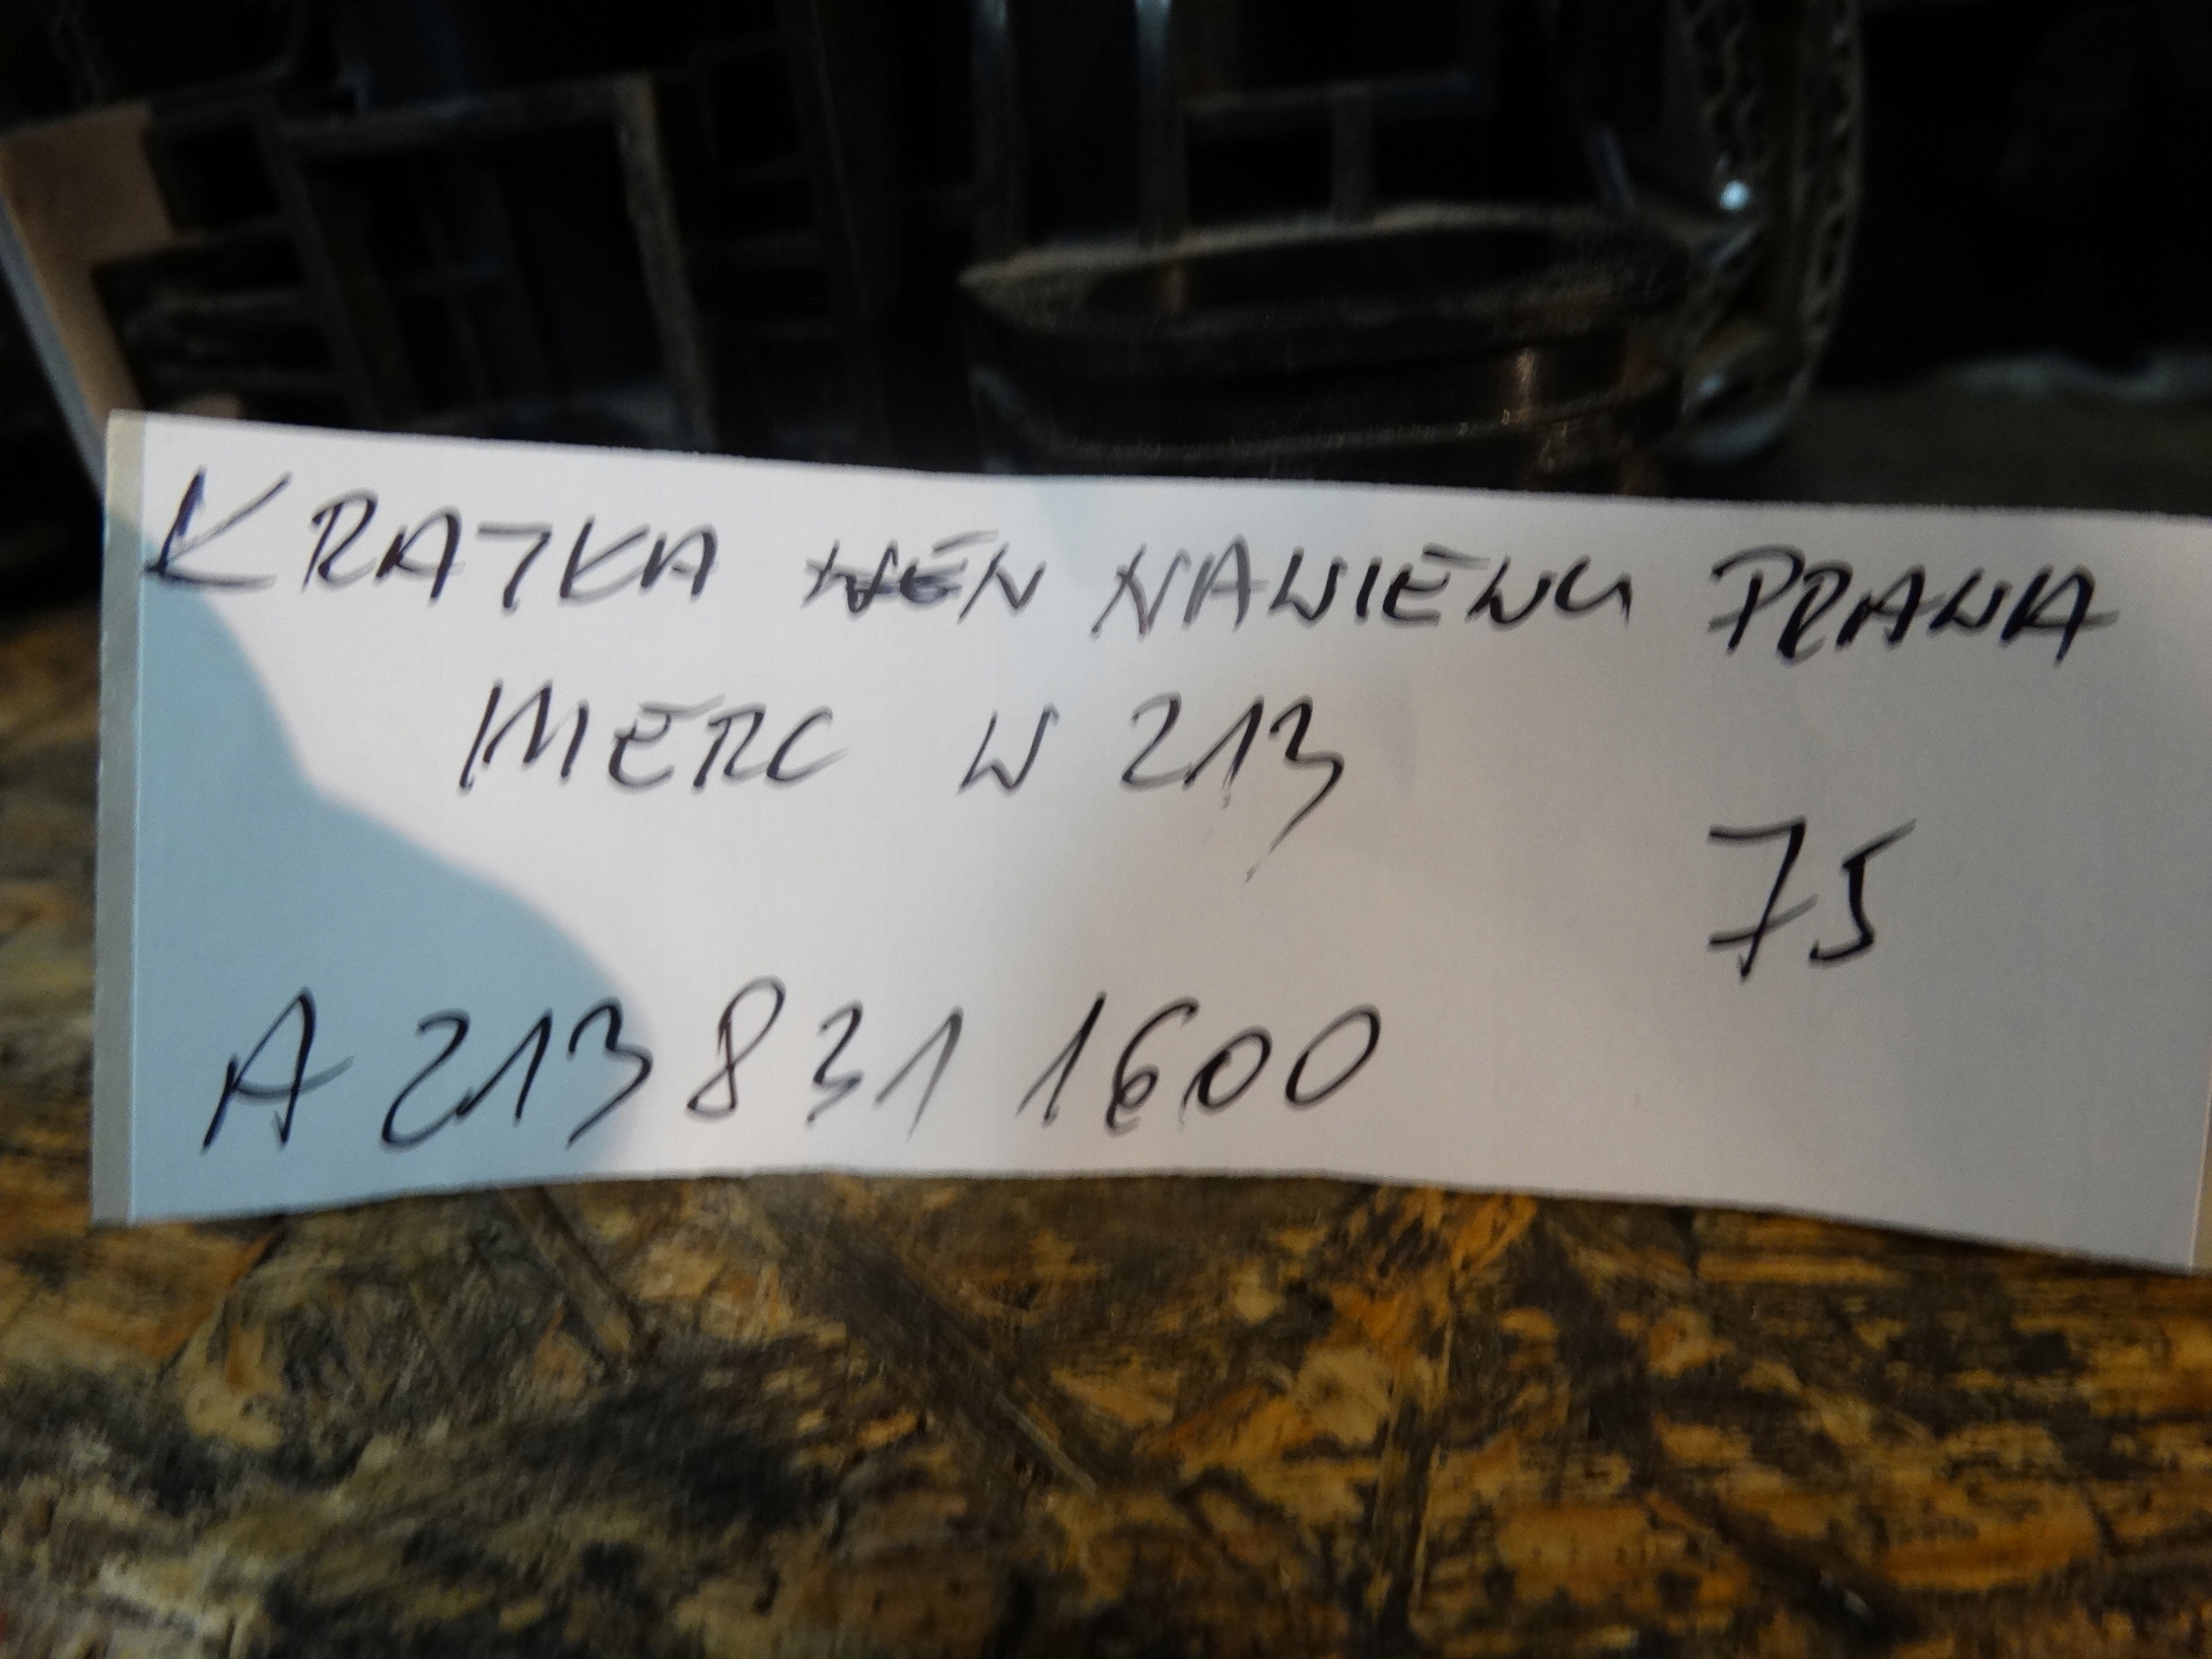 KRATKA WEN NAWIEWU PRAWA
MERC W 213
75
A 213 831 1600